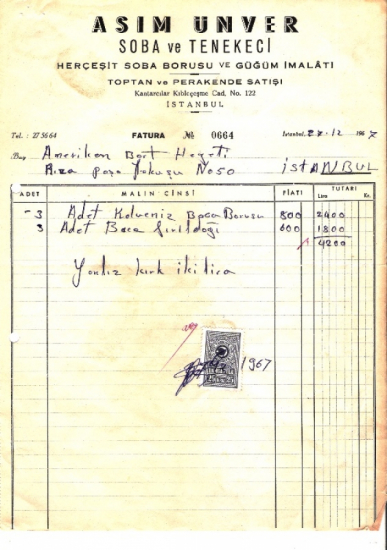 ASIM ÜNVER
SOBA ve TENEKECİ
HERÇEŞİT SOBA BORUSU VE GÜĞÜM İMALÂTI
TOPTAN ve PERAKENDE SATIŞI
Kantarcılar Kıbleçeşme Cad. No. 122
İSTANBUL
Tel. : 27 56 64 FATURA № 0664 İstanbul, 27.12 1967
Bay Amerikan Bort Heyeti
Rıza paşa Yokuşu No 50 İSTANBUL
ADET MALIN CİNSİ FİATI TUTARI
Lira Kr.
3 Adet Kalveniz Baca Borusu 800 2400
3 Adet Baca 600 1800
4200
Yanlız kırk iki lira
1967